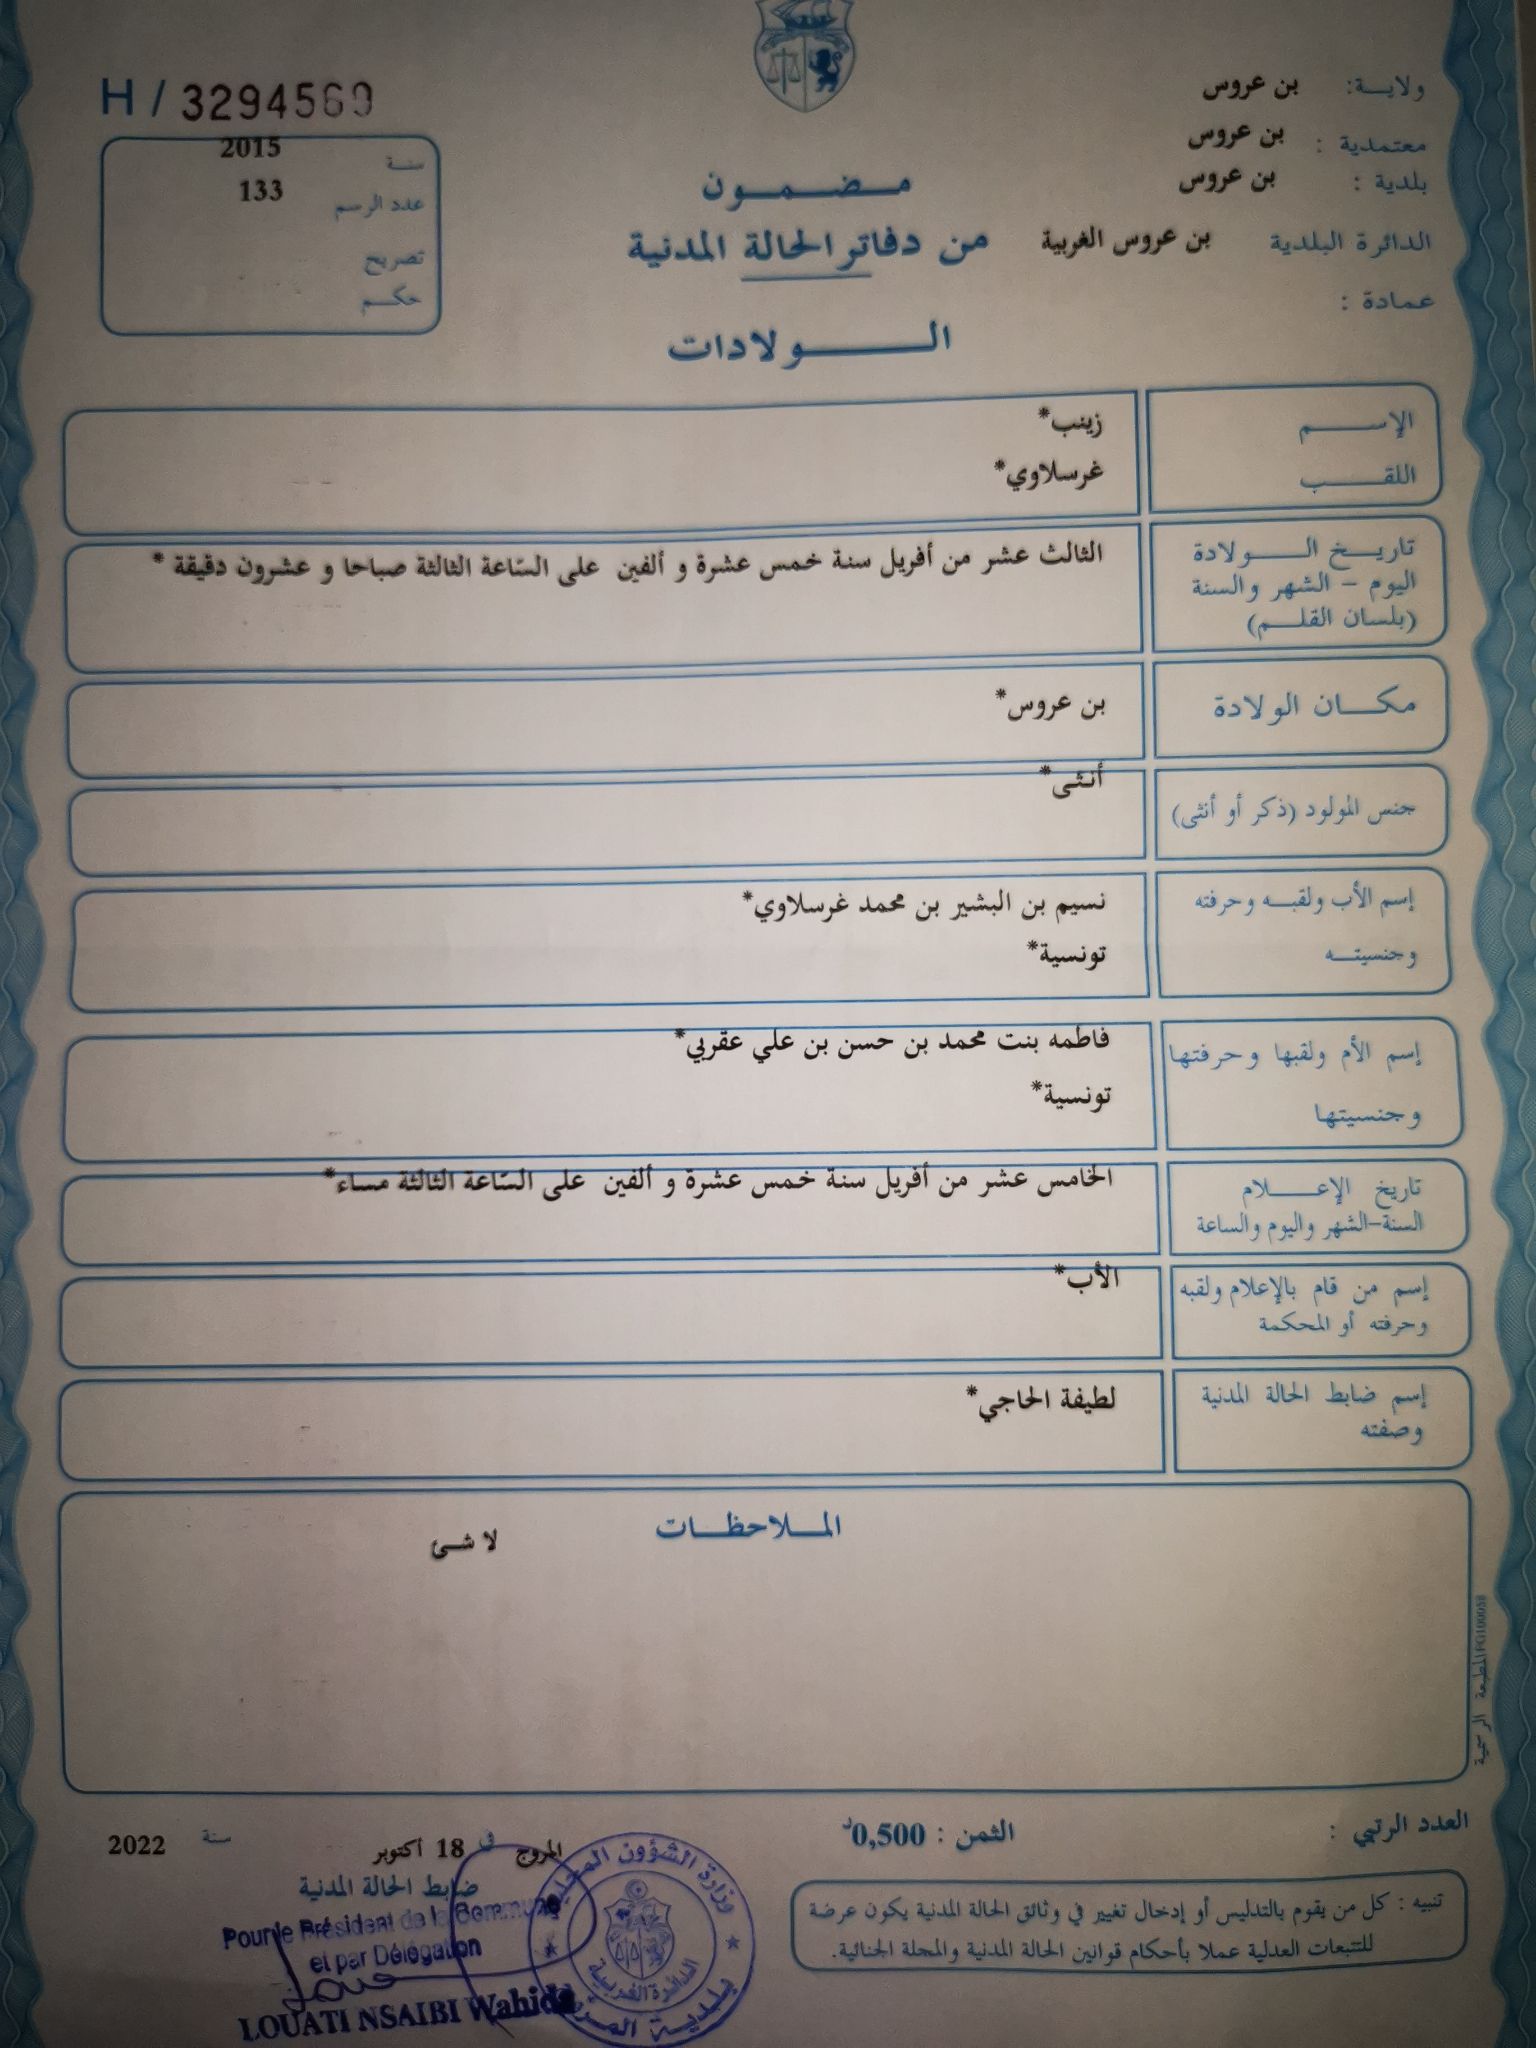 H / 3294569
ولاية: بن عروس
معتمدية : بن عروس
بلدية : بن عروس
الدائرة البلدية بن عروس الغربية
عمادة :
سنة 2015
عدد الرسم 133
تصريح
حكم
مضمون
من دفاتر الحالة المدنية
الولادات
الإسم زينب*
اللقب غرسلاوي*
تاريخ الولادة
اليوم - الشهر والسنة
(بلسان القلم)
الثالث عشر من أفريل سنة خمس عشرة و ألفين على السّاعة الثالثة صباحا و عشرون دقيقة *
مكان الولادة بن عروس*
جنس المولود (ذكر أو أنثى) أنثى*
إسم الأب ولقبه وحرفته نسيم بن البشير بن محمد غرسلاوي*
وجنسيته تونسية*
إسم الأم ولقبها وحرفتها فاطمه بنت محمد بن حسن بن علي عقربي*
وجنسيتها تونسية*
تاريخ الإعلام الخامس عشر من أفريل سنة خمس عشرة و ألفين على السّاعة الثالثة مساء*
السنة-الشهر واليوم والساعة
إسم من قام بالإعلام ولقبه الأب*
وحرفته أو المحكمة
إسم ضابط الحالة المدنية لطيفة الحاجي*
وصفته
الملاحظات
لا شئ
المطبعة الرسمية
العدد الرتبي :
الثمن : 0,500د
المروج في 18 أكتوبر سنة 2022
ضابط الحالة المدنية
Pour le Président de la Commune
et par Délégation
LOUATI NSAIBI Wahida
وزارة الشؤون المحلية
الدائرة الغربية
تنبيه : كل من يقوم بالتدليس أو إدخال تغيير في وثائق الحالة المدنية يكون عرضة
للتتبعات العدلية عملا بأحكام قوانين الحالة المدنية والمجلة الجنائية.